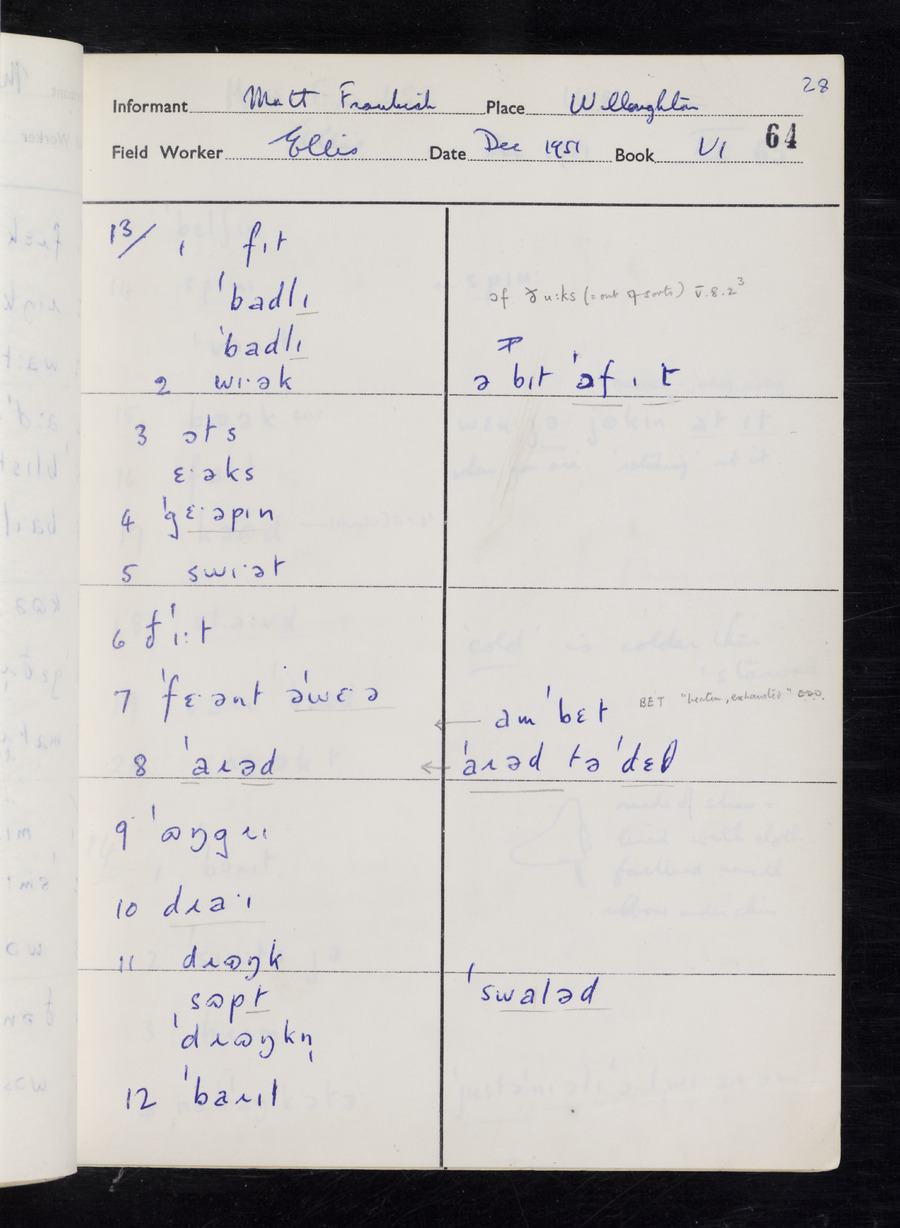 28
Informant Matt Frankish Place Willoughton
Field Worker Ellis Date Dec 1951 Book VI 64
13/ 1 fɪt
ˈbadlɪ əf ðuːks (= out of sorts) V.8.2³
ˈbadlɪ
2 wɪ·ək ə bɪt ˈɔfɪt
3 ɔts
ɛ·əks
4 ˈgɛ·əpɪn
5 swɪ·ət
6 fˈɪːt
7 ˈfɛ·ənt əˈwɛ·ə ← amˈbɛt BET "beaten, exhausted"
8 ˈaɹəd ← ˈaɹəd tə ˈdɛθ
9 ˈɷŋgɹɪ
10 dɹa·ɪ
11 dɹɷŋk
sɷpt ˈswaləd
ˈdɹɷŋkn̩
12 ˈbaɹɪl